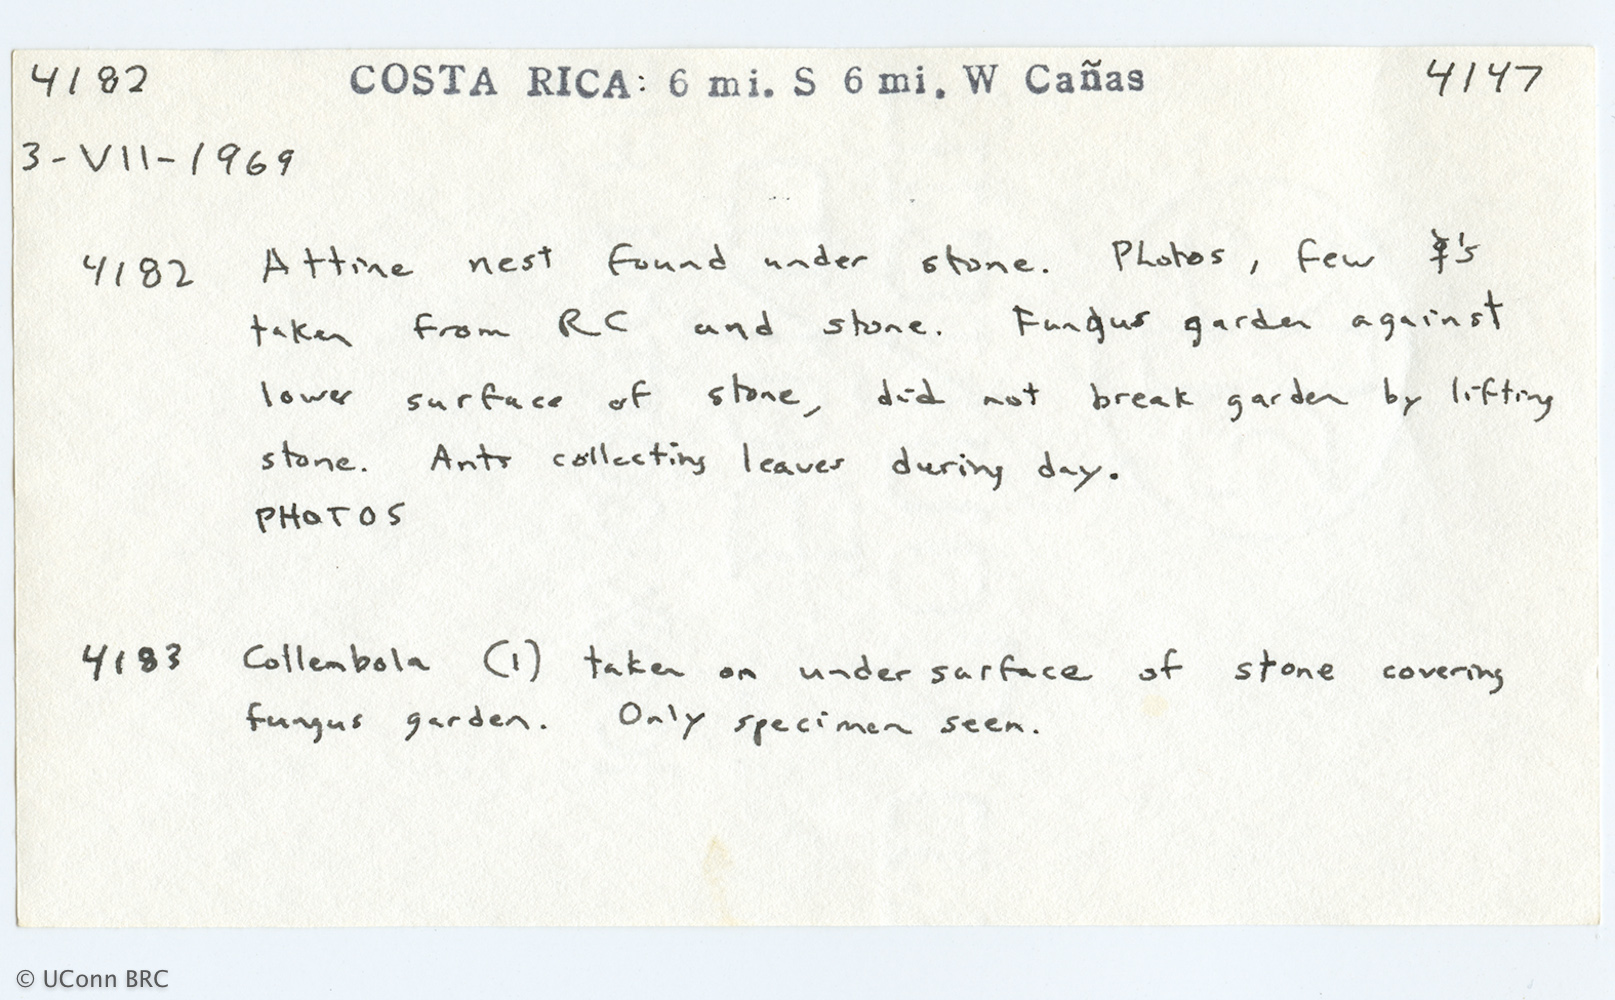 4182 COSTA RICA: 6 mi. S 6 mi. W Cañas 4147
3-VII-1969
4182 Attine nest found under stone. Photos, few ☿'s
taken from RC and stone. Fungus garden against
lower surface of stone, did not break garden by lifting
stone. Ants collecting leaves during day.
PHOTOS
4183 Collembola (1) taken on under surface of stone covering
fungus garden. Only specimen seen.
© UConn BRC